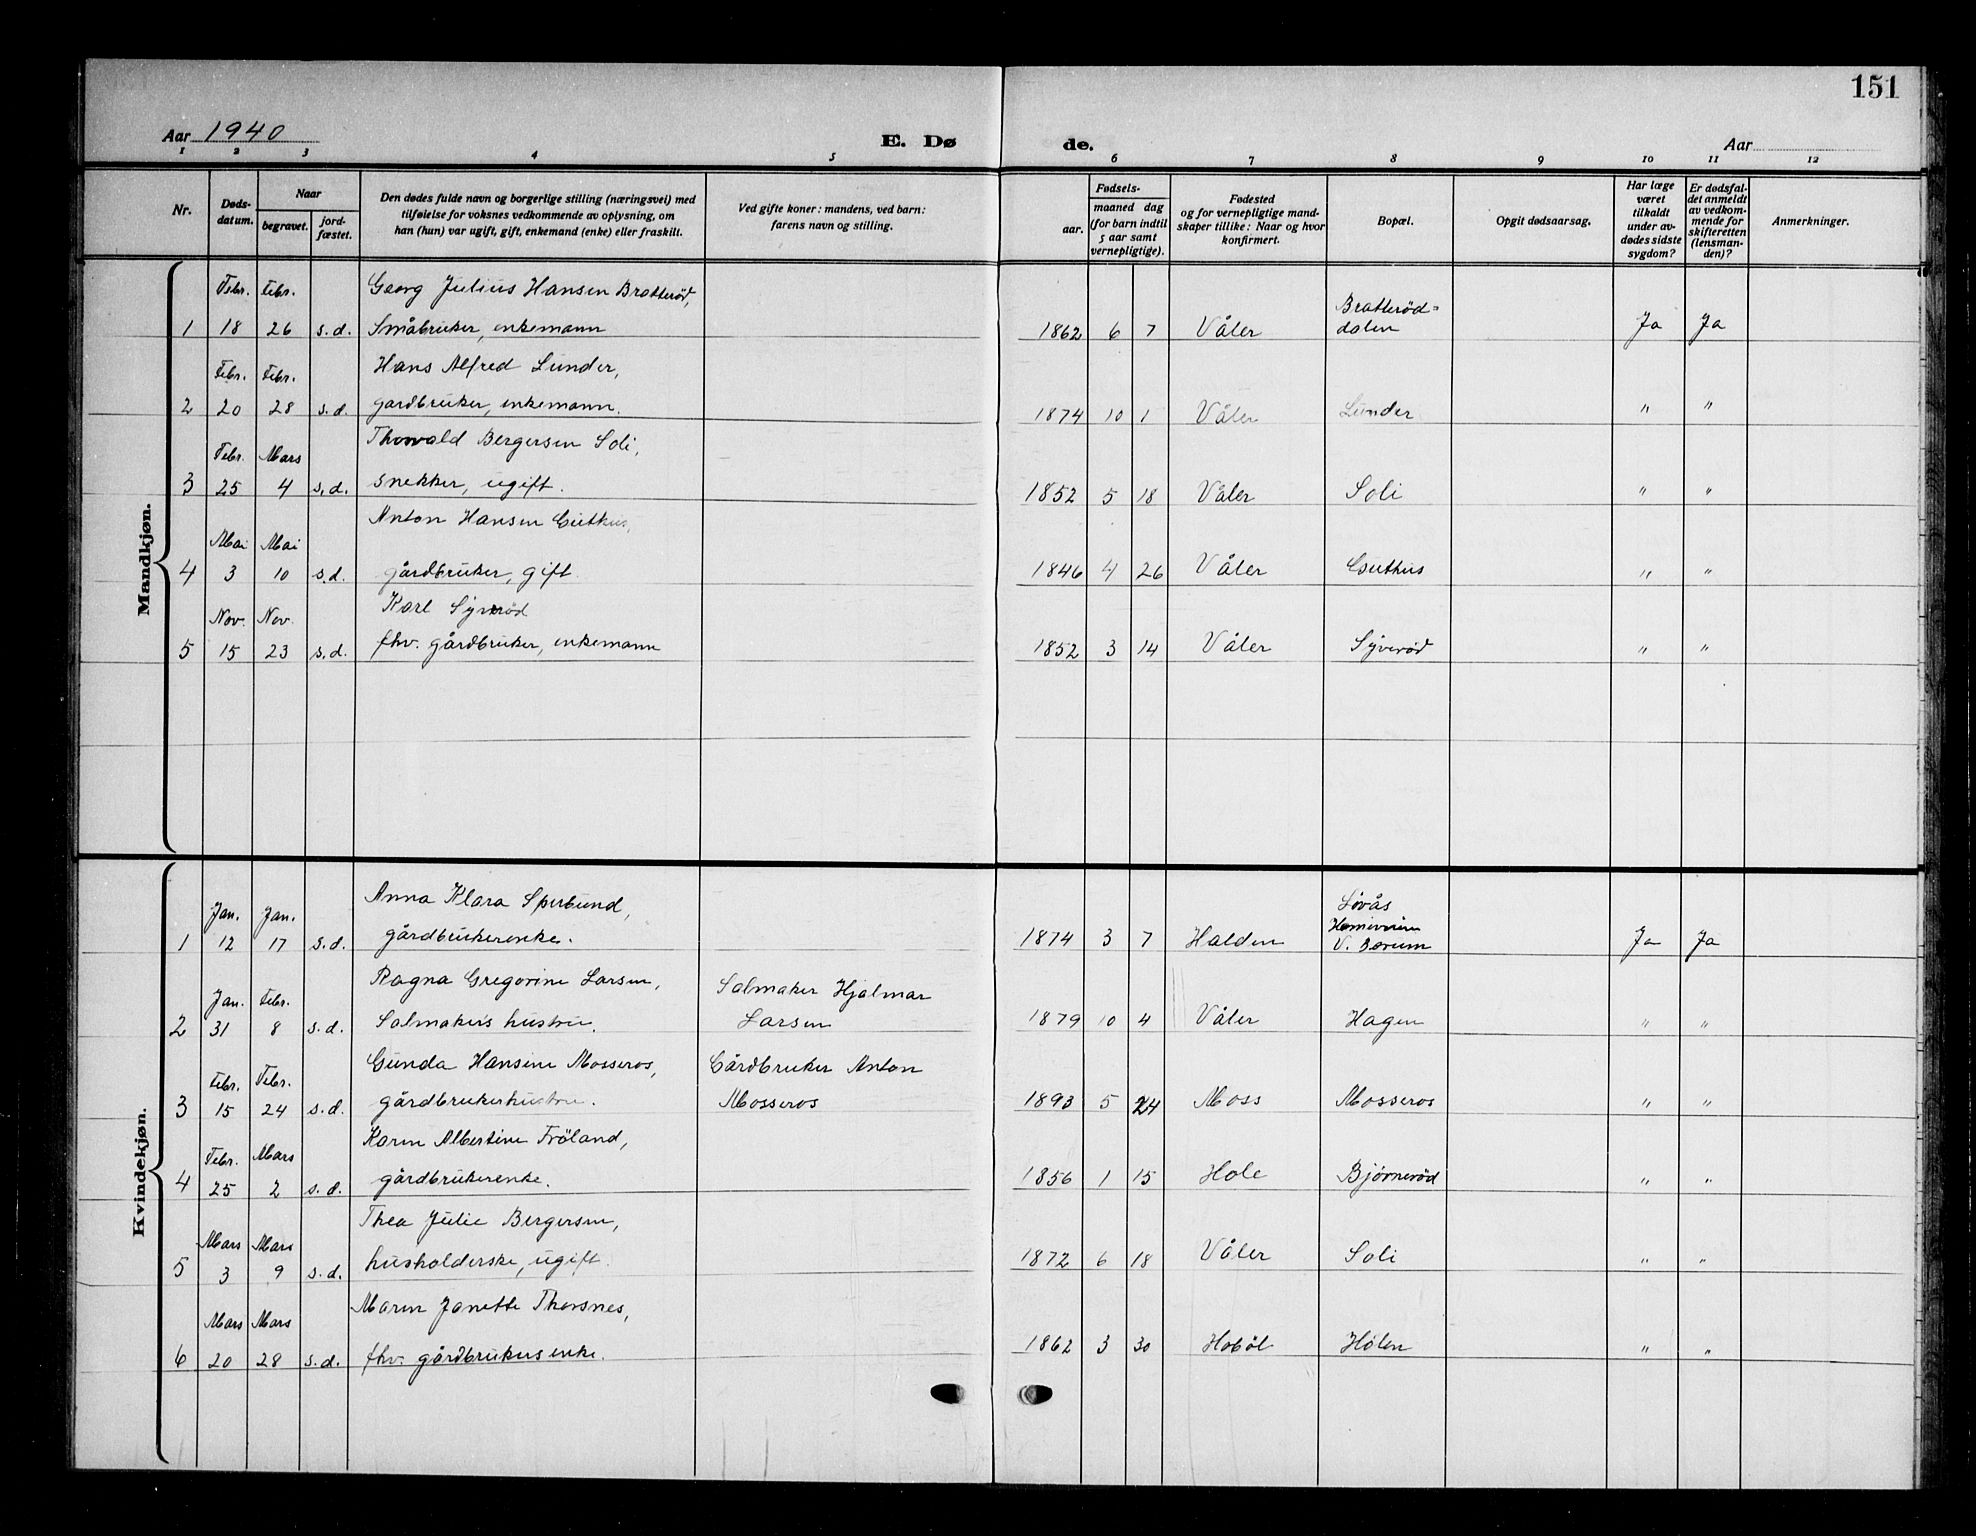 151
Aar 1940
E. Dø
de.
Aar
1 2 3 4 5 6 7 8 9 10 11 12
Nr.
Døds-
datum.
Naar
begravet.
jord-
fæstet.
Den dødes fulde navn og borgerlige stilling (næringsvei) med
tilføielse for voksnes vedkommende av oplysning, om
han (hun) var ugift, gift, enkemand (enke) eller fraskilt.
Ved gifte koner: mandens, ved barn:
farens navn og stilling.
Fødsels-
aar.
maaned dag
(for barn indtil
5 aar samt
vernepligtige).
Fødested
og for vernepligtige mand-
skaper tillike: Naar og hvor
konfirmert.
Bopæl.
Opgit dødsaarsag.
Har læge
været
tilkaldt
under av-
dødes sidste
sygdom?
Er dødsfal-
det anmeldt
av vedkom-
mende for
skifteretten
(lensman-
den)?
Anmerkninger.
Mandkjøn.
Febr. Febr. Georg Julius Hansen Bratterød, Bratterød=
1 18 26 s.d. Småbruker, enkemann 1862 6 7 Våler dalen Ja Ja
Febr. Febr. Hans Alfred Lunder,
2 20 28 s.d. gardbruker, enkemann. 1874 10 1 Våler Lunder " "
Febr. Mars Thorvald Bergersen Soli,
3 25 4 s.d. snekker, ugift. 1852 5 18 Våler Soli " "
Mai Mai Anton Hansen Guthus,
4 3 10 s.d. gårdbruker, gift 1846 4 26 Våler Guthus " "
Nov. Nov. Karl Syverød
5 15 23 s.d. fhv. gårdbruker, enkemann 1852 3 14 Våler Syverød " "
Kvindekjøn.
Jan. Jan. Anna Klara Sperbund, Løvås
1 12 17 s.d. gårdbrukerenke. 1874 3 7 Halden V. Bærum Ja Ja
Jan. Febr. Ragna Gregorine Larsen, Salmaker Hjalmar
2 31 8 s.d. Salmakers hustru. Larsen 1879 10 4 Våler Hagen " "
Febr. Febr. Gunda Hansine Mosseros, Gårdbruker Anton
3 15 24 s.d. gårdbrukerhustru. Mosseros 1893 5 24 Moss Mosseros " "
Febr. Mars Karen Albertine Frøland,
4 25 2 s.d. gårdbrukerenke. 1856 1 15 Hole Bjørnerød " "
Mars Mars Thea Julie Bergersen,
5 3 9 s.d. husholderske, ugift. 1872 6 18 Våler Soli " "
Mars Mars Maren Janette Thorsnes,
6 20 28 s.d. fhv. gårdbrukers enke. 1862 3 30 Hobøl Hølen " "